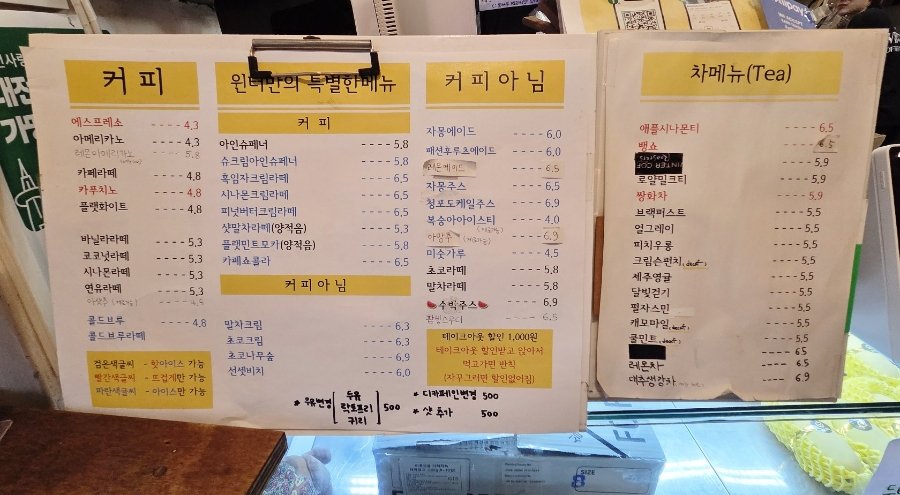 커피
에스프레소 ---- 4,3
아메리카노 ---- 4,3
레몬아메리카노 ---- 5,8
카페라떼 ---- 4,8
카푸치노 ---- 4,8
플랫화이트 ---- 4,8
바닐라라떼 ---- 5,3
코코넛라떼 ---- 5,3
시나몬라떼 ---- 5,3
연유라떼 ---- 5,3
4,5
콜드브루 ---- 4,8
콜드브루라떼
검은색글씨 - 핫아이스 가능
빨간색글씨 - 뜨겁게만 가능
파란색글씨 - 아이스만 가능
윈터만의 특별한메뉴
커피
아인슈페너 ---- 5,8
슈크림아인슈페너 ---- 6,5
흑임자크림라떼 ---- 6,5
시나몬크림라떼 ---- 6,5
피넛버터크림라떼 ---- 6,5
샷말차라떼(양적음) ---- 5,3
플랫민트모카(양적음) ---- 5,8
카페쇼콜라 ---- 6,5
커피아님
말차크림 ---- 6,3
초코크림 ---- 6,3
초코나무숲 ---- 6,9
선셋비치 ---- 6,0
* 우유변경 [두유 락토프리 귀리] 500
커피아님
자몽에이드 ---- 6,0
패션후루츠에이드 ---- 6,0
레몬에이드 ---- 6,5
자몽주스 ---- 6,5
청포도케일주스 ---- 6,9
복숭아아이스티 ---- 4,0
6,9
미숫가루 ---- 4,5
초코라떼 ---- 5,8
말차라떼 ---- 5,8
수박주스 ---- 6,9
6,5
테이크아웃 할인 1,000원
테이크아웃 할인받고 앉아서
먹고가면 반칙
(자꾸그러면 할인없어짐)
* 디카페인변경 500
* 샷 추가 500
차메뉴(Tea)
애플시나몬티 ---- 6,5
뱅쇼 ---- 6,5
---- 5,9
로얄밀크티 ---- 5,9
쌍화차 ---- 5,9
브랙퍼스트 ---- 5,5
얼그레이 ---- 5,5
피치우롱 ---- 5,5
크림슨펀치(decaf) ---- 5,5
세주영귤 ---- 5,5
달빛걷기 ---- 5,5
필자스민 ---- 5,5
캐모마일(decaf) ---- 5,5
쿨민트(decaf) ---- 5,5
---- 6,5
레몬차 ---- 6,5
대추생강차 ---- 6,9
SIZE
8